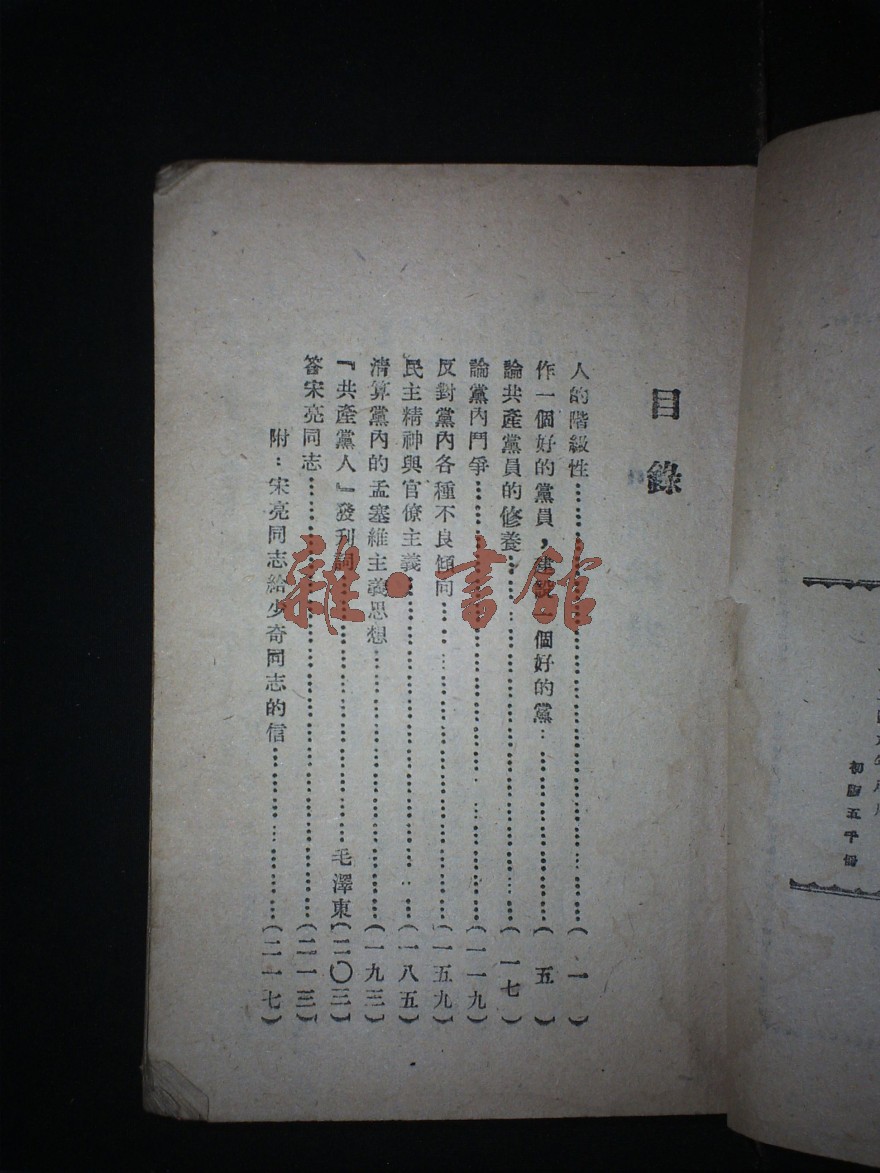 目錄
人的階級性……(一)
作一個好的黨員,建設 個好的黨……(五)
論共產黨員的修養……(一七)
論黨內鬥爭……(一一九)
反對黨內各種不良傾向……(一五九)
民主精神與官僚主義……(一八五)
清算黨內的孟塞維主義思想……(一九三)
『共產黨人』發刊詞……毛澤東(二〇三)
答宋亮同志……(二一三)
附:宋亮同志給少奇同志的信……(二一七)
初版五千冊
雜·書館